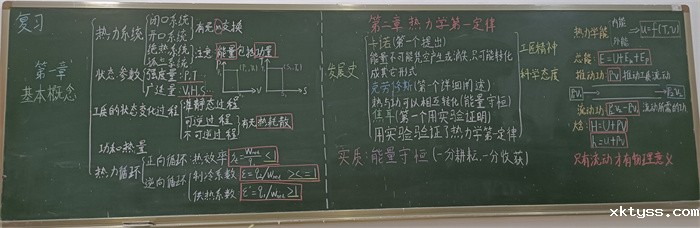 复习
第一章
基本概念
热力系统
闭口系统
开口系统
有无m交换
绝热系统
孤立系统
注意 能量包括功量
状态参数
强度量: P.T...
广延量: V.H.S...
工质的状态变化过程
准静态过程
可逆过程
不可逆过程
有无热耗散
功和热量
热力循环
正向循环
热效率
<1
逆向循环
制冷系数
供热系数
第二章 热力学第一定律
发展史
卡诺(第一个提出)
能量不可能凭空产生或消失,只可能转化
成其它形式
克劳修斯(第一个详细阐述)
热与功可以相互转化(能量守恒)
焦耳(第一个用实验证明)
用实验验证了热力学第一定律
工匠精神
科学态度
实质: 能量守恒 (一分耕耘,一分收获)
热力学能
内能
外能
U=f(T,v)
总能 E=U+Ek+Ep
推动功 PV 推动工质流动
P1V1
P2V2
流动功 P2V2-P1V1 流动所需的功
大焓: H=U+PV
h=u+pv
只有流动才有物理意义
xktyss.com